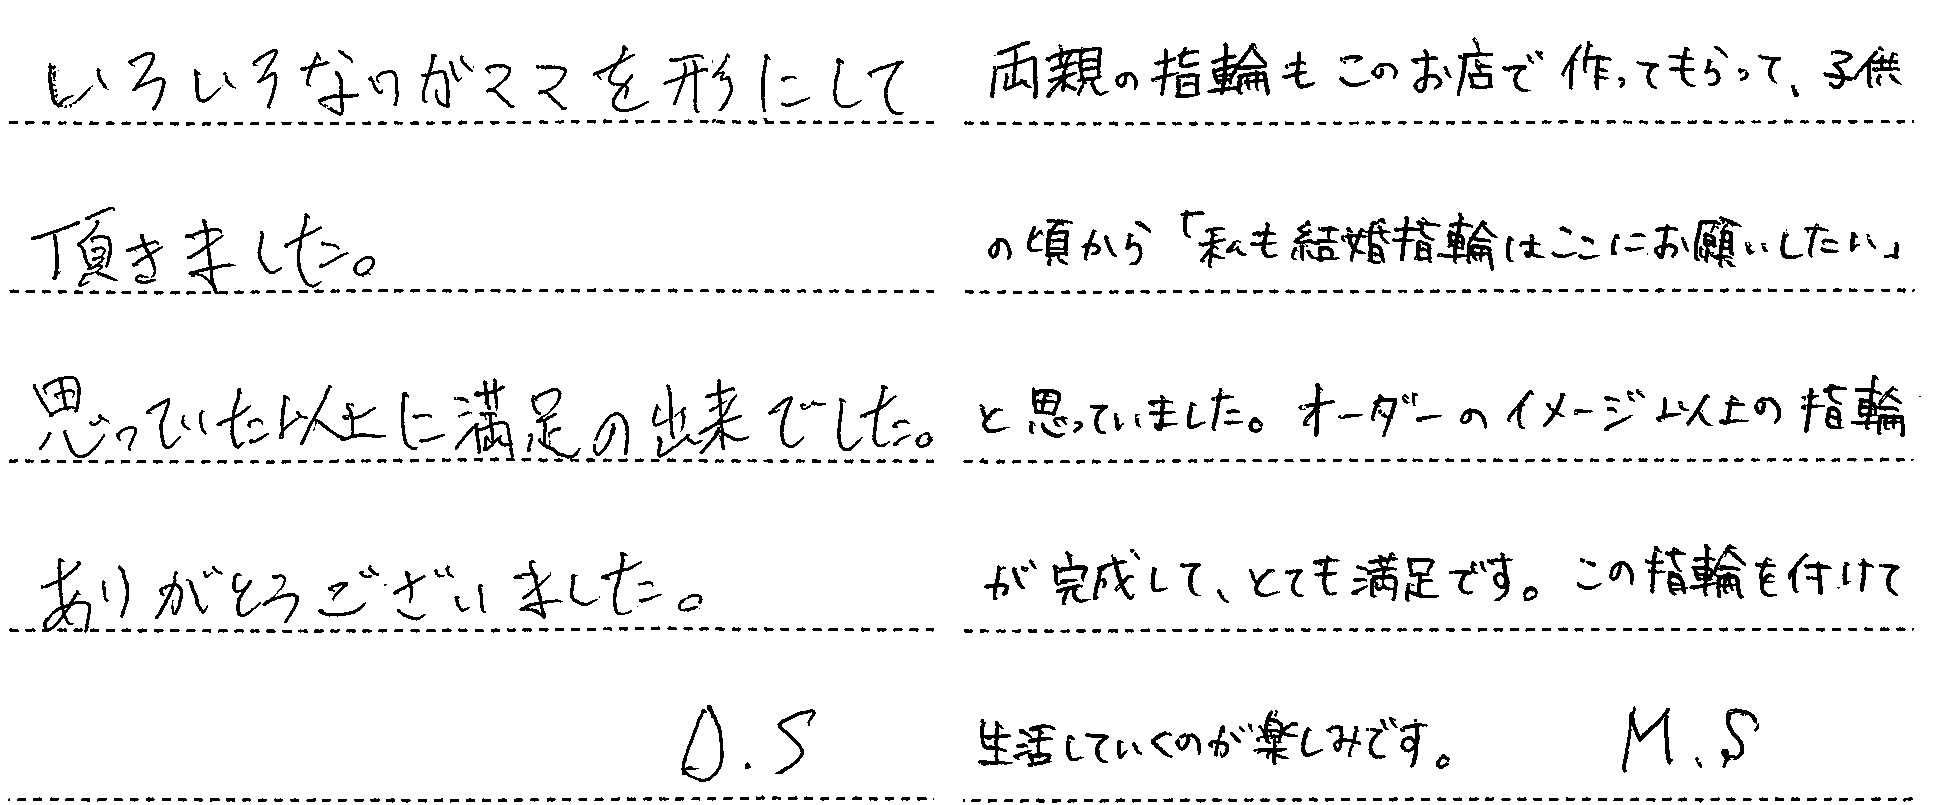 いろいろなワガママを形にして
頂きました。
思っていた以上に満足の出来でした。
ありがとうございました。
D.S
両親の指輪もこのお店で作ってもらって、子供
の頃から「私も結婚指輪はここにお願いしたい」
と思っていました。オーダーのイメージ以上の指輪
が完成して、とても満足です。この指輪を付けて
生活していくのが楽しみです。 M.S